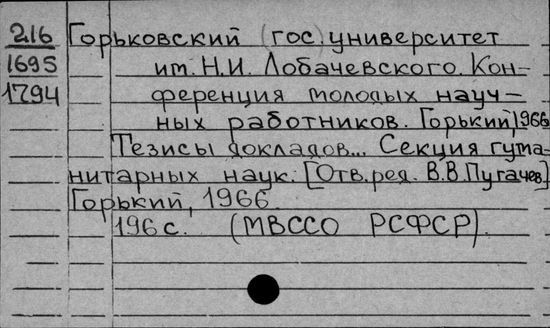 216 Горьковский (гос) университет
1695 им. Н.И. Лобачевского. Кон-
1794 ференция молодых науч-
ных работников. Горький, 1966
Тезисы докладов... Секция гума-
нитарных наук. [Отв. ред. В.В. Пугачев]
Горький, 1966.
196 с. (МВССО РСФСР).